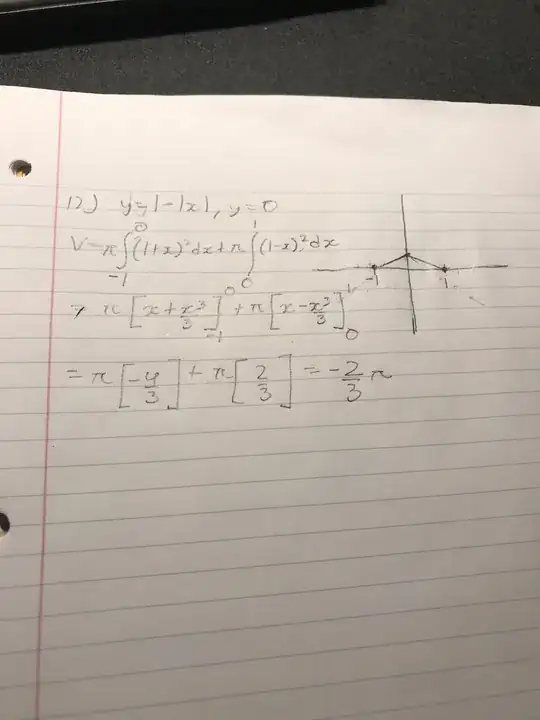 12) y=1-|x|, y=0
V=π∫_{-1}^{0}(1+x)²dx+π∫_{0}^{1}(1-x)²dx
-1 1
= π[x+x³/3]_{-1}^{0}+π[x-x³/3]_{0}^{1}
=π[-4/3]+π[2/3]=-2/3π